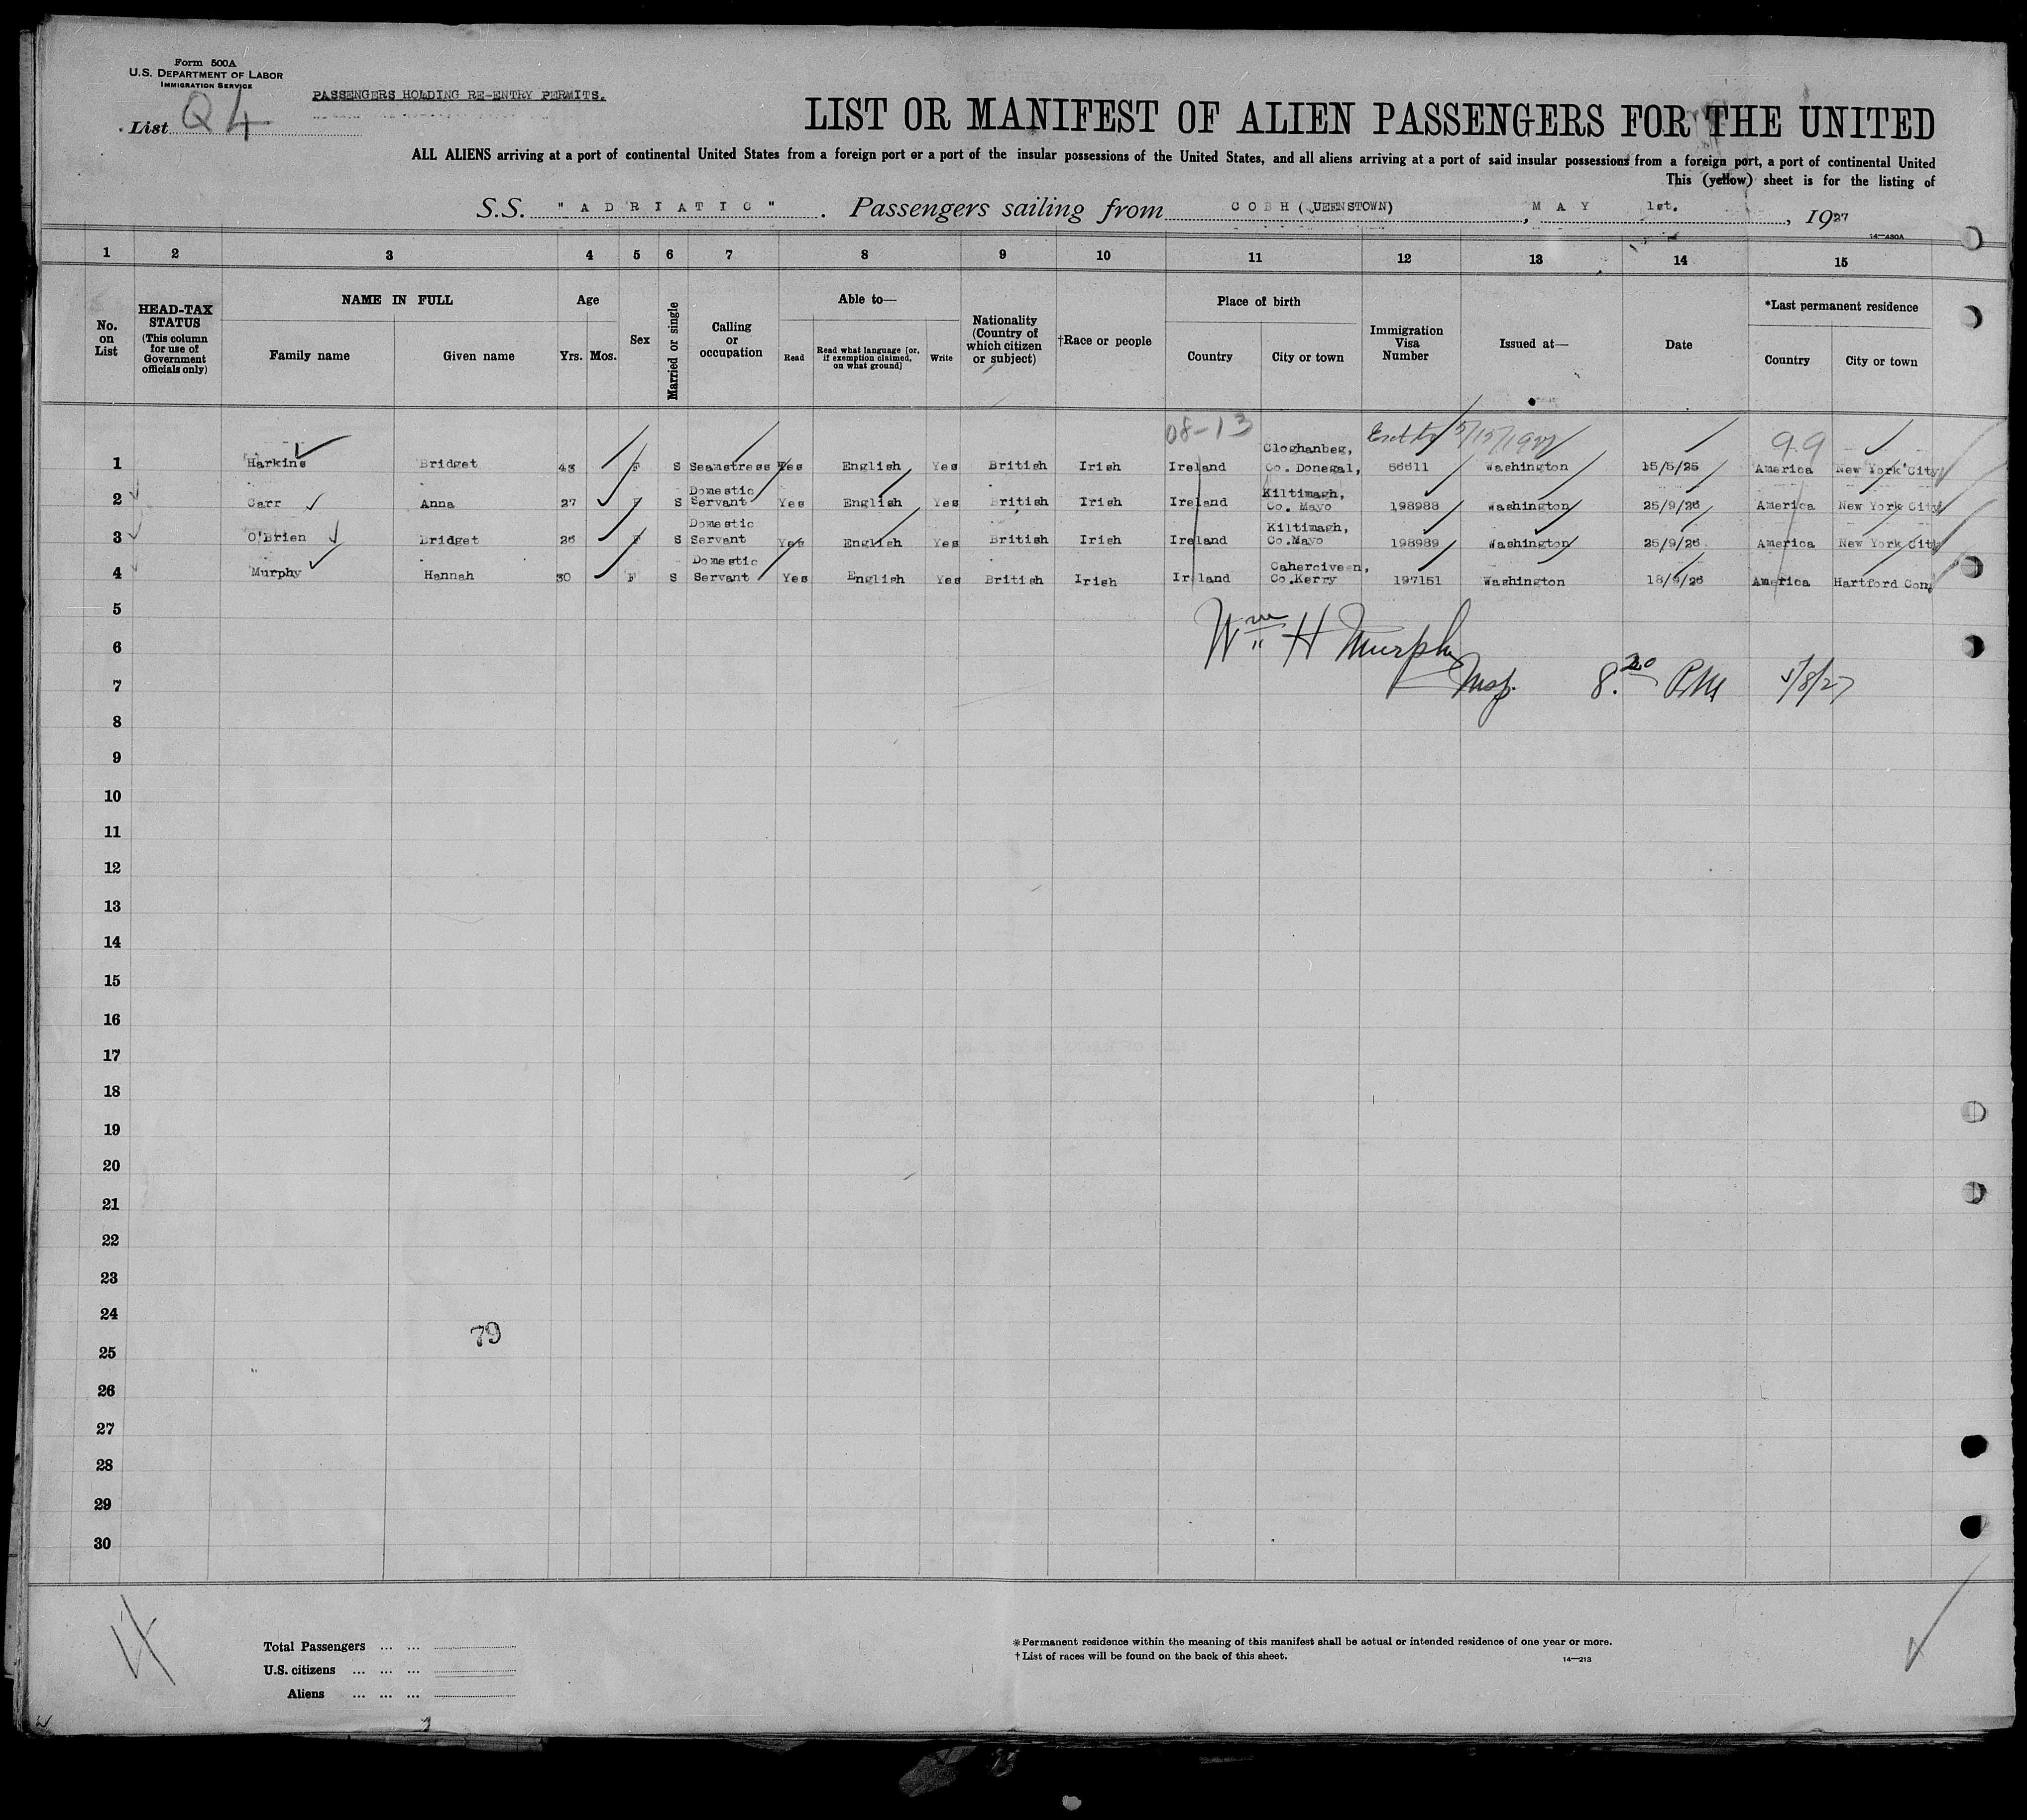 Form 500A
U.S. DEPARTMENT OF LABOR
IMMIGRATION SERVICE
PASSENGERS HOLDING RE-ENTRY PERMITS.
List Q4
LIST OR MANIFEST OF ALIEN PASSENGERS FOR THE UNITED
ALL ALIENS arriving at a port of continental United States from a foreign port or a port of the insular possessions of the United States, and all aliens arriving at a port of said insular possessions from a foreign port, a port of continental United
This (yellow) sheet is for the listing of
S.S. "ADRIATIC". Passengers sailing from COBH (QUEENSTOWN), MAY 1st., 1927
14—430A
1 2 3 4 5 6 7 8 9 10 11 12 13 14 15
No. on List
HEAD-TAX STATUS (This column for use of Government officials only)
NAME IN FULL
Family name Given name
Age
Yrs. Mos.
Sex
Married or single
Calling or occupation
Able to—
Read Read what language [or, if exemption claimed, on what ground] Write
Nationality (Country of which citizen or subject)
†Race or people
Place of birth
Country City or town
Immigration Visa Number
Issued at—
Date
*Last permanent residence
Country City or town
08-13 5/15/1927 99
1 Harkins Bridget 43 F S Seamstress Yes English Yes British Irish Ireland Cloghanbeg, Co. Donegal, 56611 Washington 15/5/25 America New York City
2 Carr Anna 27 F S Domestic Servant Yes English Yes British Irish Ireland Kiltimagh, Co. Mayo 198988 Washington 25/9/26 America New York City
3 O'Brien Bridget 26 F S Domestic Servant Yes English Yes British Irish Ireland Kiltimagh, Co.Mayo 198989 Washington 25/9/26. America New York City
4 Murphy Hannah 30 F S Domestic Servant Yes English Yes British Irish Ireland Caherciveen, Co.Kerry 197151 Washington 18/9/26 America Hartford Con.
5
6
Wm H Murphy
7
Insp. 8.20 PM 5/8/27
8
9
10
11
12
13
14
15
16
17
18
19
20
21
22
23
24
79
25
26
27
28
29
30
4
Total Passengers ... ...
U.S. citizens ... ... ...
Aliens ... ... ...
*Permanent residence within the meaning of this manifest shall be actual or intended residence of one year or more.
†List of races will be found on the back of this sheet.
14—213